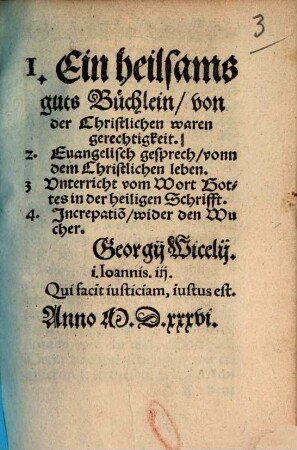 3
1. Ein heilsams
guts Büchlein / von
der Christlichen waren
gerechtigkeit. |
2. Euangelisch gesprech / vonn
dem Christlichen leben.
3 Vnterricht vom Wort Got-
tes in der heiligen Schrifft.
4. Increpatiõ / wider den Wu
cher.
Georgij Wicelij.
i. Ioannis. iij.
Qui facit iusticiam, iustus est.
Anno M. D. xxxvi.